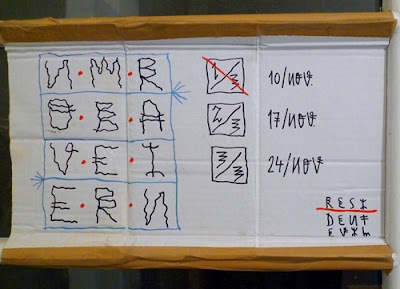 N·M·R
O B A
V·E·I
E·R·N
1/3 10/NOV.
2/3 17/NOV.
3/3 24/NOV
RESI
DENT
EVIL